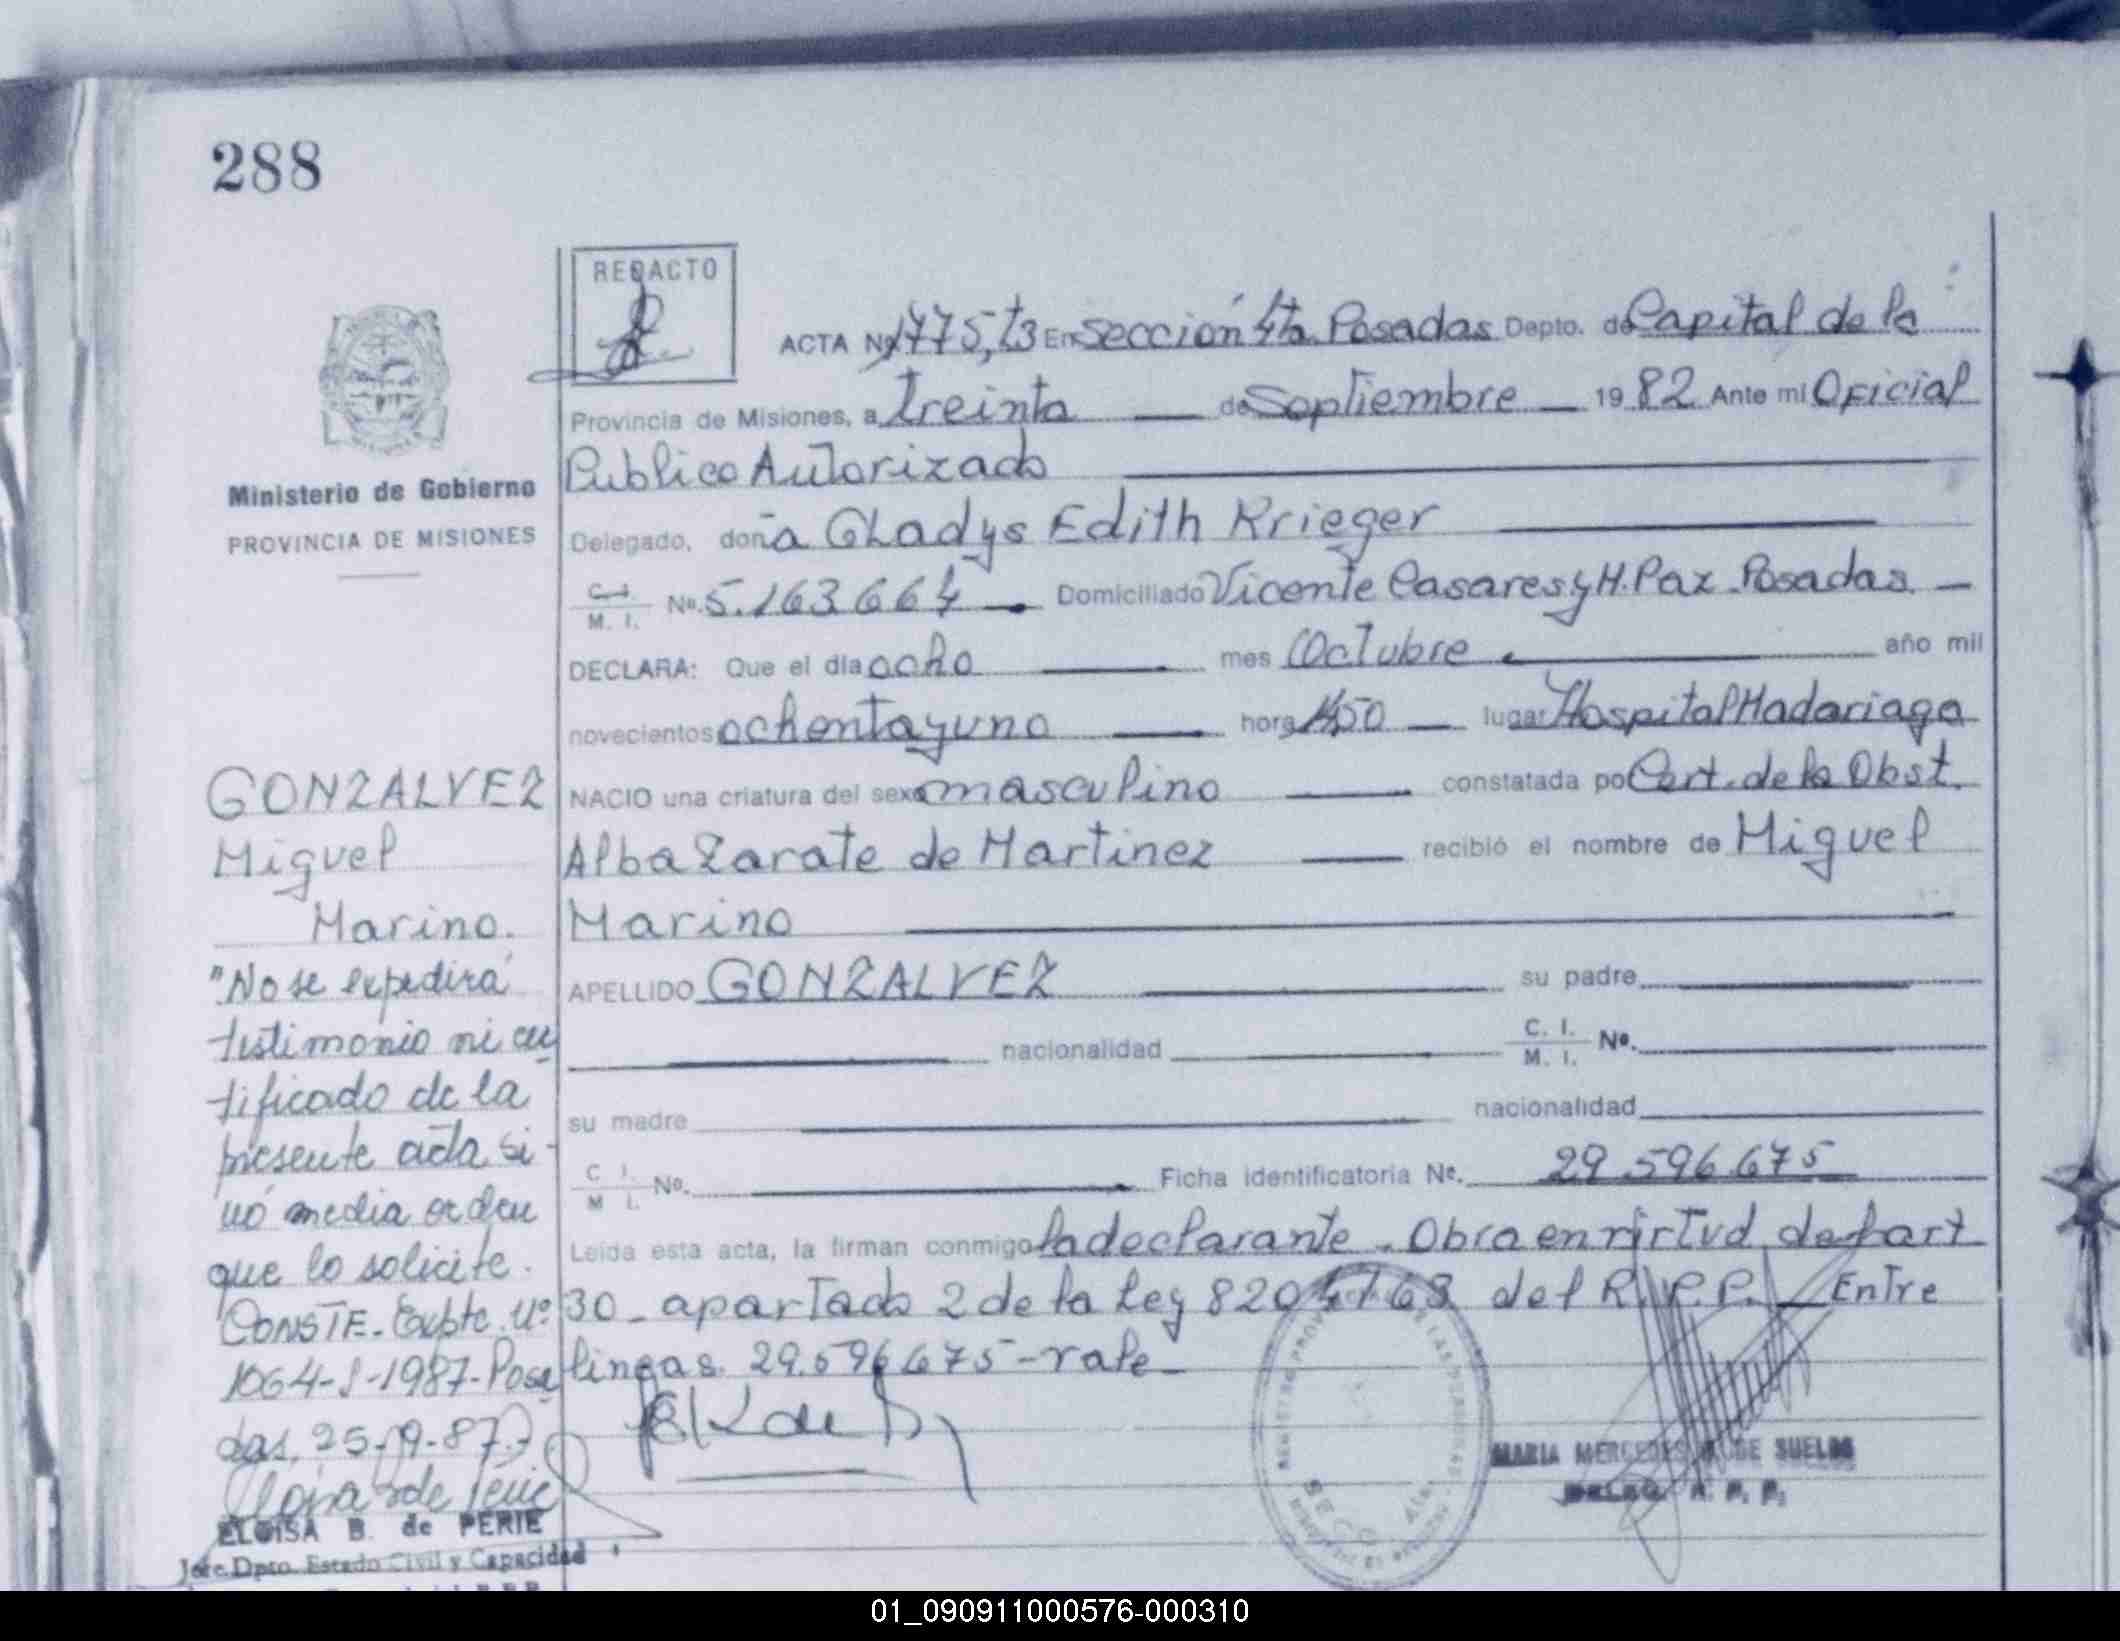 288
REDACTO
ACTA Nº 1775, t3 En Sección 4ta. Posadas Depto. de Capital de la
Provincia de Misiones, a treinta de Septiembre 1982 Ante mí Oficial
Publico Autorizado
Ministerio de Gobierno
PROVINCIA DE MISIONES
Delegado, doña Gladys Edith Krieger
C. I. M. I. Nº. 5.163.664 Domiciliado Vicente Casares y H. Paz. Posadas.
DECLARA: Que el día ocho mes Octubre año mil
novecientos ochenta y uno hora lugar Hospital Madariaga
NACIO una criatura del sexo masculino constatada por Cert. de la Obst.
Alba Zarate de Martinez recibió el nombre de Miguel
Marino
APELLIDO GONZALVEZ su padre
nacionalidad C. I. M. I. Nº.
su madre nacionalidad
C. I. M. I. Nº. Ficha identificatoria Nº. 29.596.675
Leída esta acta, la firman conmigo la declarante. Obra en virtud del art
30_ apartado 2 de la Ley 8204/63 del R.P.P. Entre
lineas. 29.596.675 - vale
GONZALVEZ
Miguel
Marino.
"No se expedirá
testimonio ni cer
tificado de la
presente acta si-
nó media orden
que lo solicite.
CONSTE. Expte. Nº
1064-J-1987-Posa
das, 25-9-87.
ELOISA B. de PERIE
Jefe. Dpto. Estado Civil y Capacidad
MARIA MERCEDES DE SUELDO
DELEG. R. P. P.
01_090911000576-000310